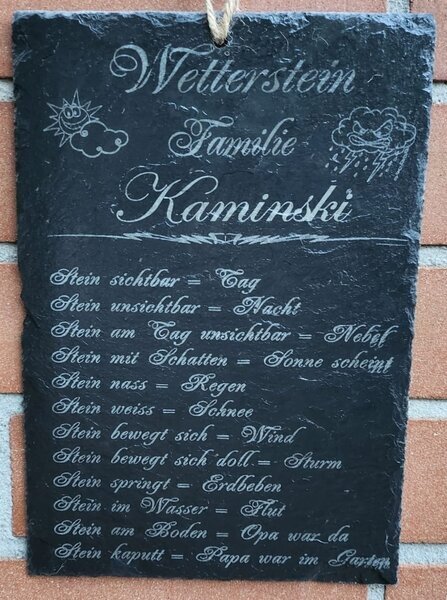 Wetterstein
Familie
Kaminski
Stein sichtbar = Tag
Stein unsichtbar = Nacht
Stein am Tag unsichtbar = Nebel
Stein mit Schatten = Sonne scheint
Stein nass = Regen
Stein weiss = Schnee
Stein bewegt sich = Wind
Stein bewegt sich doll = Sturm
Stein springt = Erdbeben
Stein im Wasser = Flut
Stein am Boden = Opa war da
Stein kaputt = Papa war im Garten